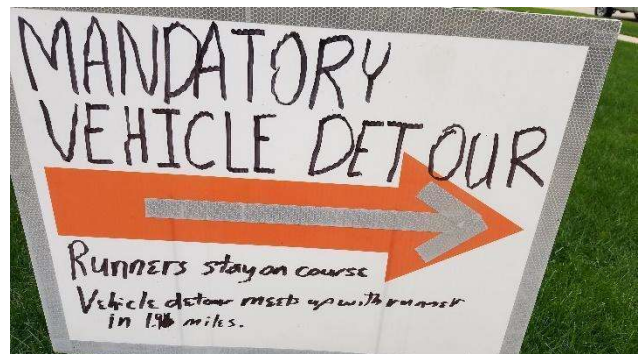 MANDATORY
VEHICLE DETOUR
Runners stay on course
Vehicle detour meets up with runner
in miles.